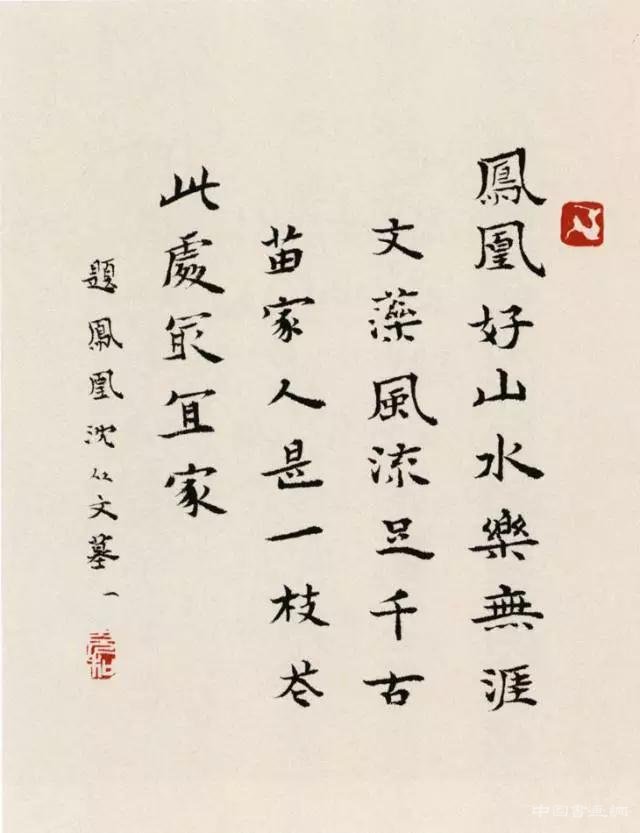 鳳凰好山水樂無涯
文藻風流足千古
苗家人是一枝花
此處冣冝家
題鳳凰沈从文墓一
中国書画網